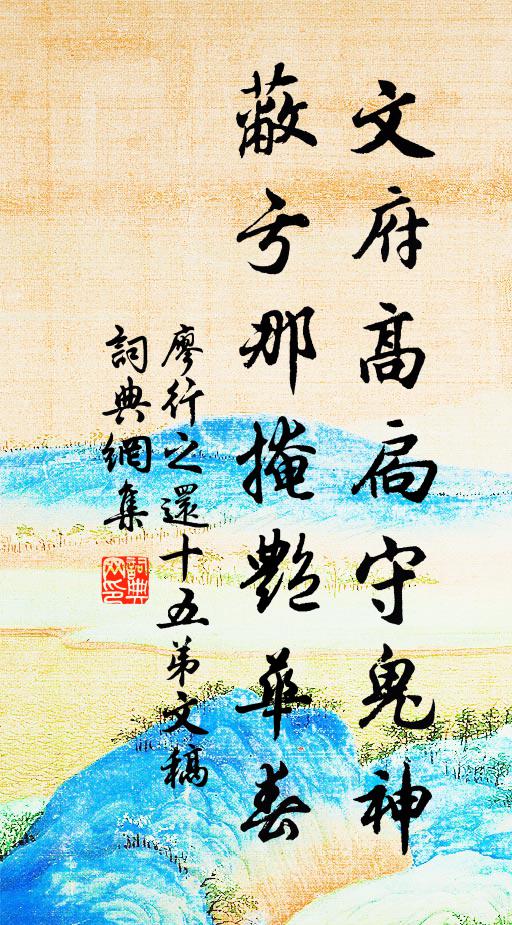 文府高扃守鬼神
蔽亏那掩艳华春
廖行之還十五弟文稿
詞典網集
詞典网印